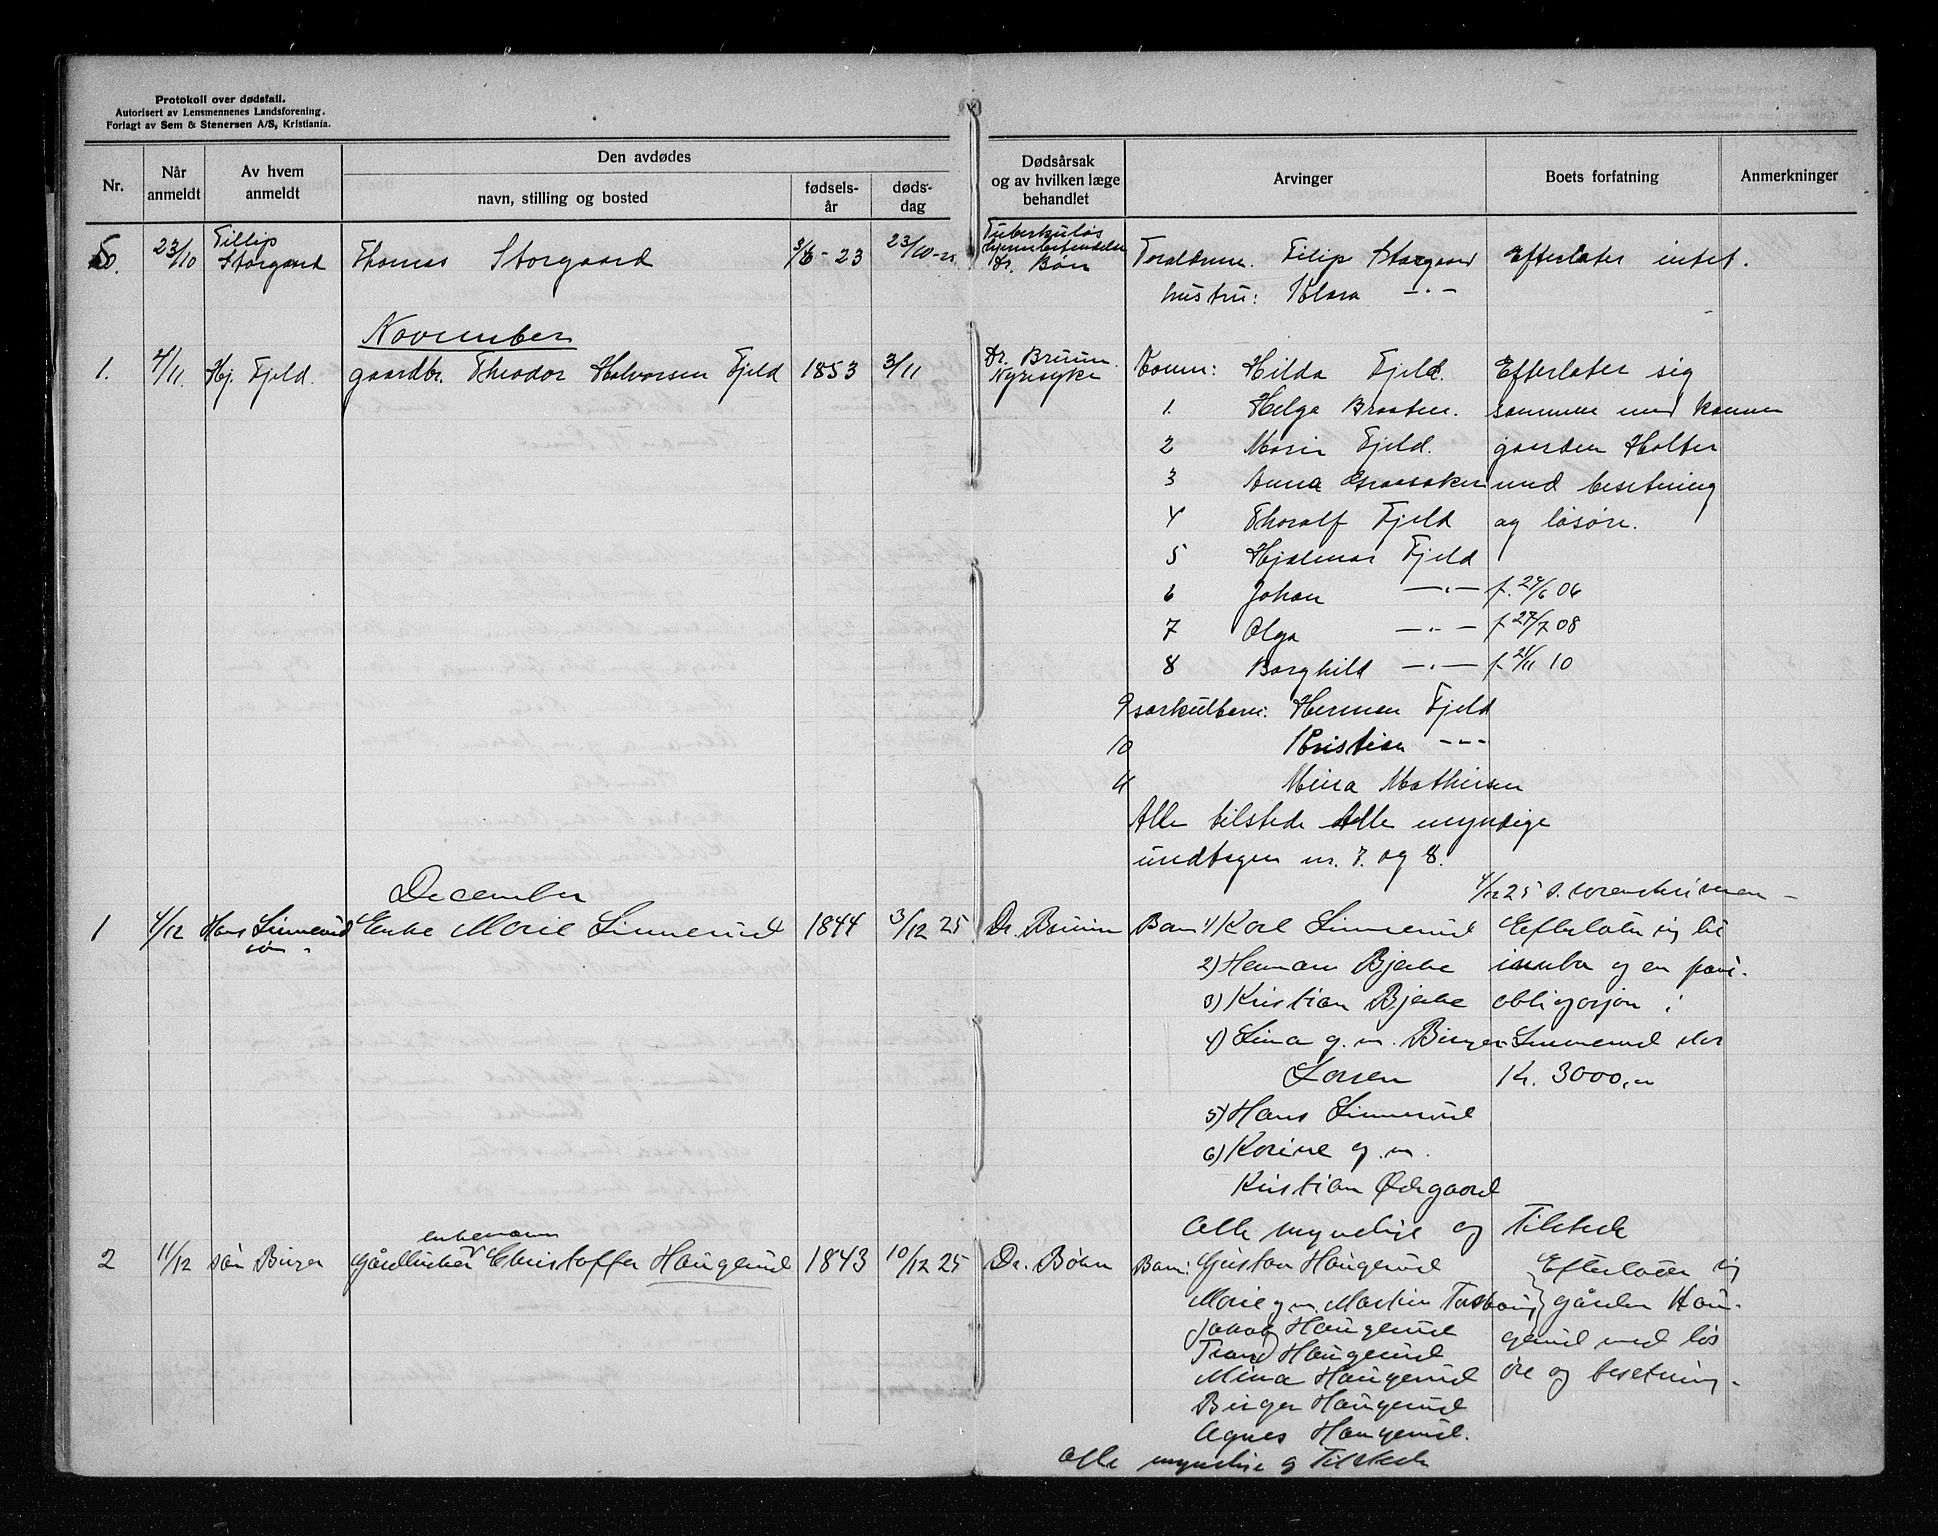 Protokoll over dødsfall.
Autorisert av Lensmennenes Landsforening.
Forlagt av Sem & Stenersen A/S, Kristiania.
Nr.
Når anmeldt
Av hvem anmeldt
Den avdødes
navn, stilling og bosted
fødsels-år
døds-dag
Dødsårsak og av hvilken læge behandlet
Arvinger
Boets forfatning
Anmerkninger
23/10 Fillip Storgaard Thomas Storgaard 3/6-23 23/10-25 Tuberkuløs Dr. Bøhn
Forældrene. Filip Storgaard Efterlater intet.
hustru: Klara -"-
November
1. 4/11 Hj. Fjeld. gaardbr. Theodor Halvorsen Fjeld 1853 3/11 Dr. Bruun Nyresyke
Konen: Hilda Fjeld. Efterlater sig
1. Helga Braaten. sammen med konen
2 Marie Fjeld. gaarden Holter
3 Anna Graasaker med besetning
4 Thoralf Fjeld og løsøre.
5 Hjalmar Fjeld
6 Johan -"- f. 29/6 06
7 Olga -"- f 27/7 08
8 Borghild -"- f. 21/11 10
9 særkulbarn: Herman Fjeld
10 Kristian -"-
11 Mina Mathisen
Alle tilstede Alle myndige
undtagen nr. 7. og 8.
December
4/12 25 s.
1 4/12 Hans Linnerud søn Enke Marie Linnerud 1844 3/12 25 Dr. Bruun
Barn 1) Karl Linnerud Efterlater sig lit
2) Herman Bjerke innbo og en pant-
3) Kristian Bjerke obligasjon i
4) Lina g. m. Birger Linnerud stor
Larsen Kr. 3000,"
5) Hans Linnerud
6) Karine g. m.
Kristian Ødegaard
Alle myndige og Tilstede
enkemann
2 11/12 søn Birger gårdbruker Christoffer Haugerud 1843 10/12 25 Dr. Bøhn
Barn: Gustav Haugerud Efterlater sig
Marie g. m. Martin gården Hau-
Jakob Haugerud gerud med løs
Haugerud
Mina Haugerud øre og besetning.
Birger Haugerud
Agnes Haugerud.
Alle myndige og Tilstede